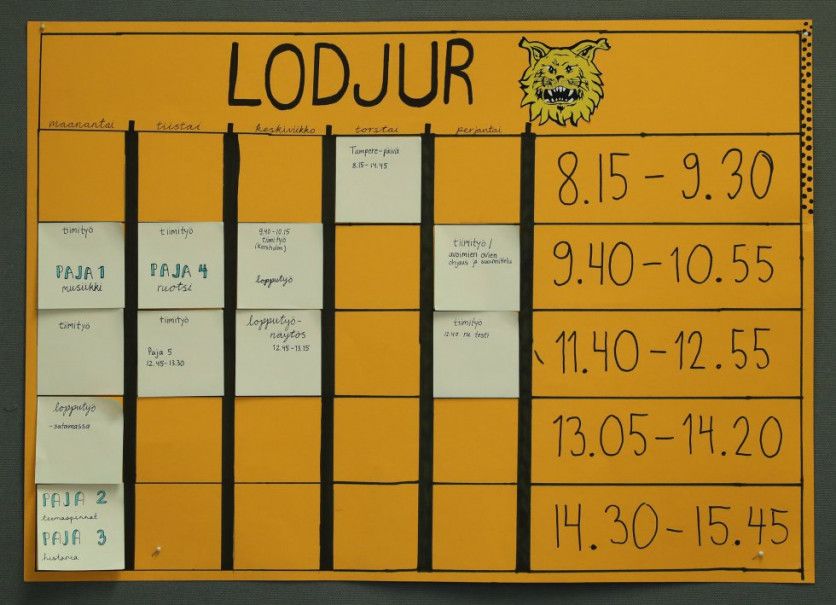 LODJUR
maanantai tiistai keskiviikko torstai perjantai
Tampere-päivä
8.15-14.45
8.15-9.30
tiimityö
PAJA 1
musiikki
tiimityö
PAJA 4
ruotsi
9.40-10.15
tiimityö
lopputyö
tiimityö/
avoimien ovien
ohjaus ja suunnittelu
9.40-10.55
tiimityö
tiimityö
Paja 5
12.45-13.30
lopputyö-
näytös
12.45-13.15
tiimityö
11.40-12.55
lopputyö
-satamassa
13.05-14.20
PAJA 2
PAJA 3
historia
14.30-15.45